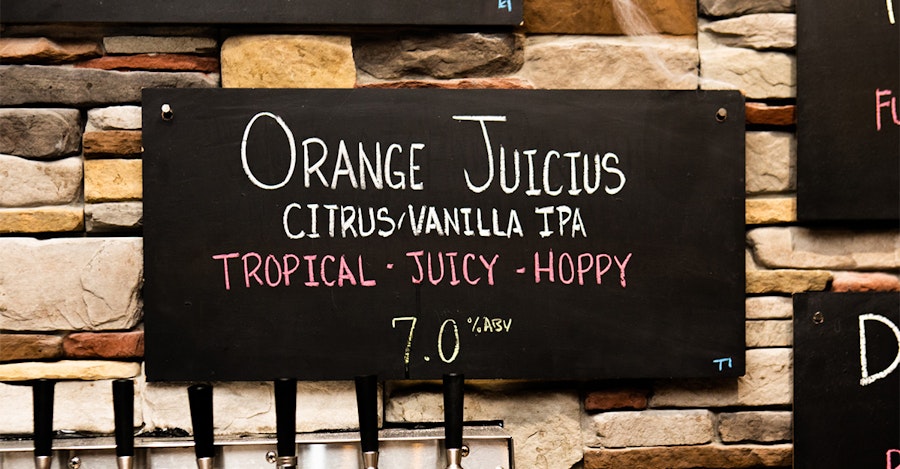 ORANGE JUICIUS
CITRUS/VANILLA IPA
TROPICAL - JUICY - HOPPY
7.0 % ABV